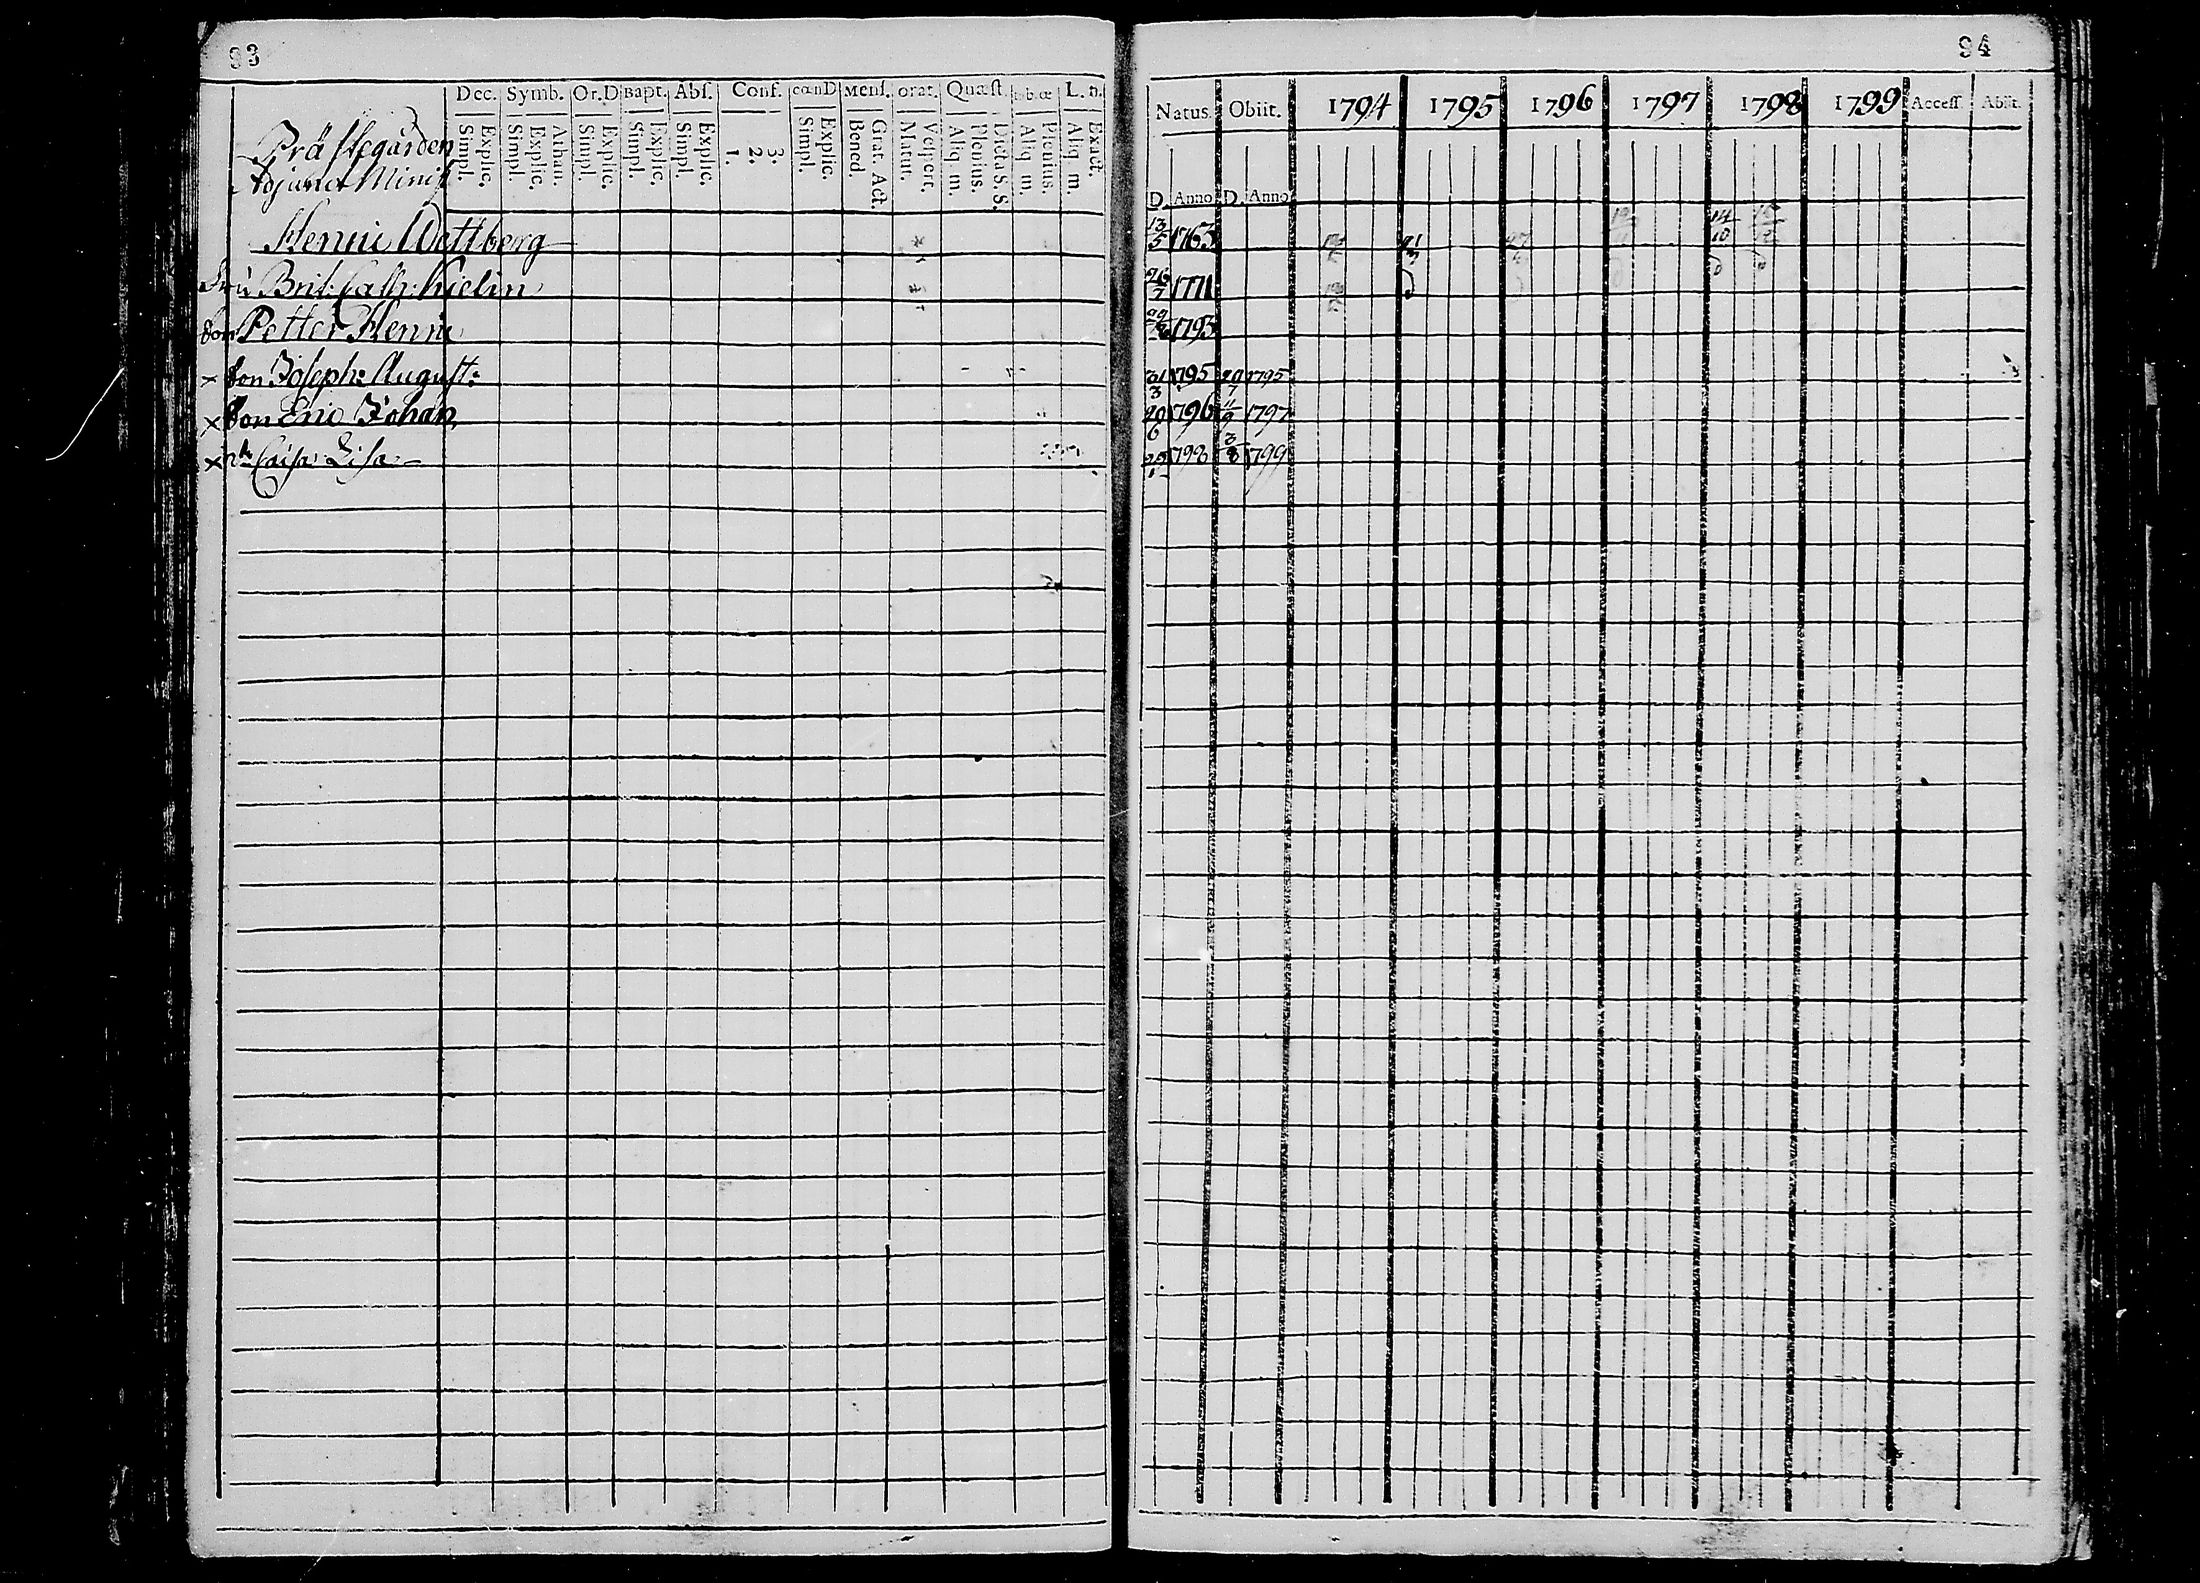 93
Dec. Symb. Or.D Bapt. Abs. Conf. cœnD Mens. orat. Quæst. L. n.
Simpl. Explic. Simpl. Explic. Athan. Simpl. Explic. Simpl. Explic. Simpl. Explic. 1. 2. 3. Simpl. Explic. Bened. Grat. Act. Matut. Vespert. Aliq m. Plenius. Dicta S. S. Aliq m. Plenius. Aliq m. Exact.
Prästegården
Adjunct Minist
Henric Wettberg
Fru Brit: Cath: Kielin
Son Petter Henric
× Son Joseph: August:
× Son Eric Johan
× Caisa Lisa
94
Natus. Obiit. 1794 1795 1796 1797 1798 1799 Access. Abiit.
D. Anno D. Anno
13/5 1763 14/10
26/7 1771
1793
31/3 1795 20/7 1795
20/6 1796 11/9 1797
1798 3/8 1799